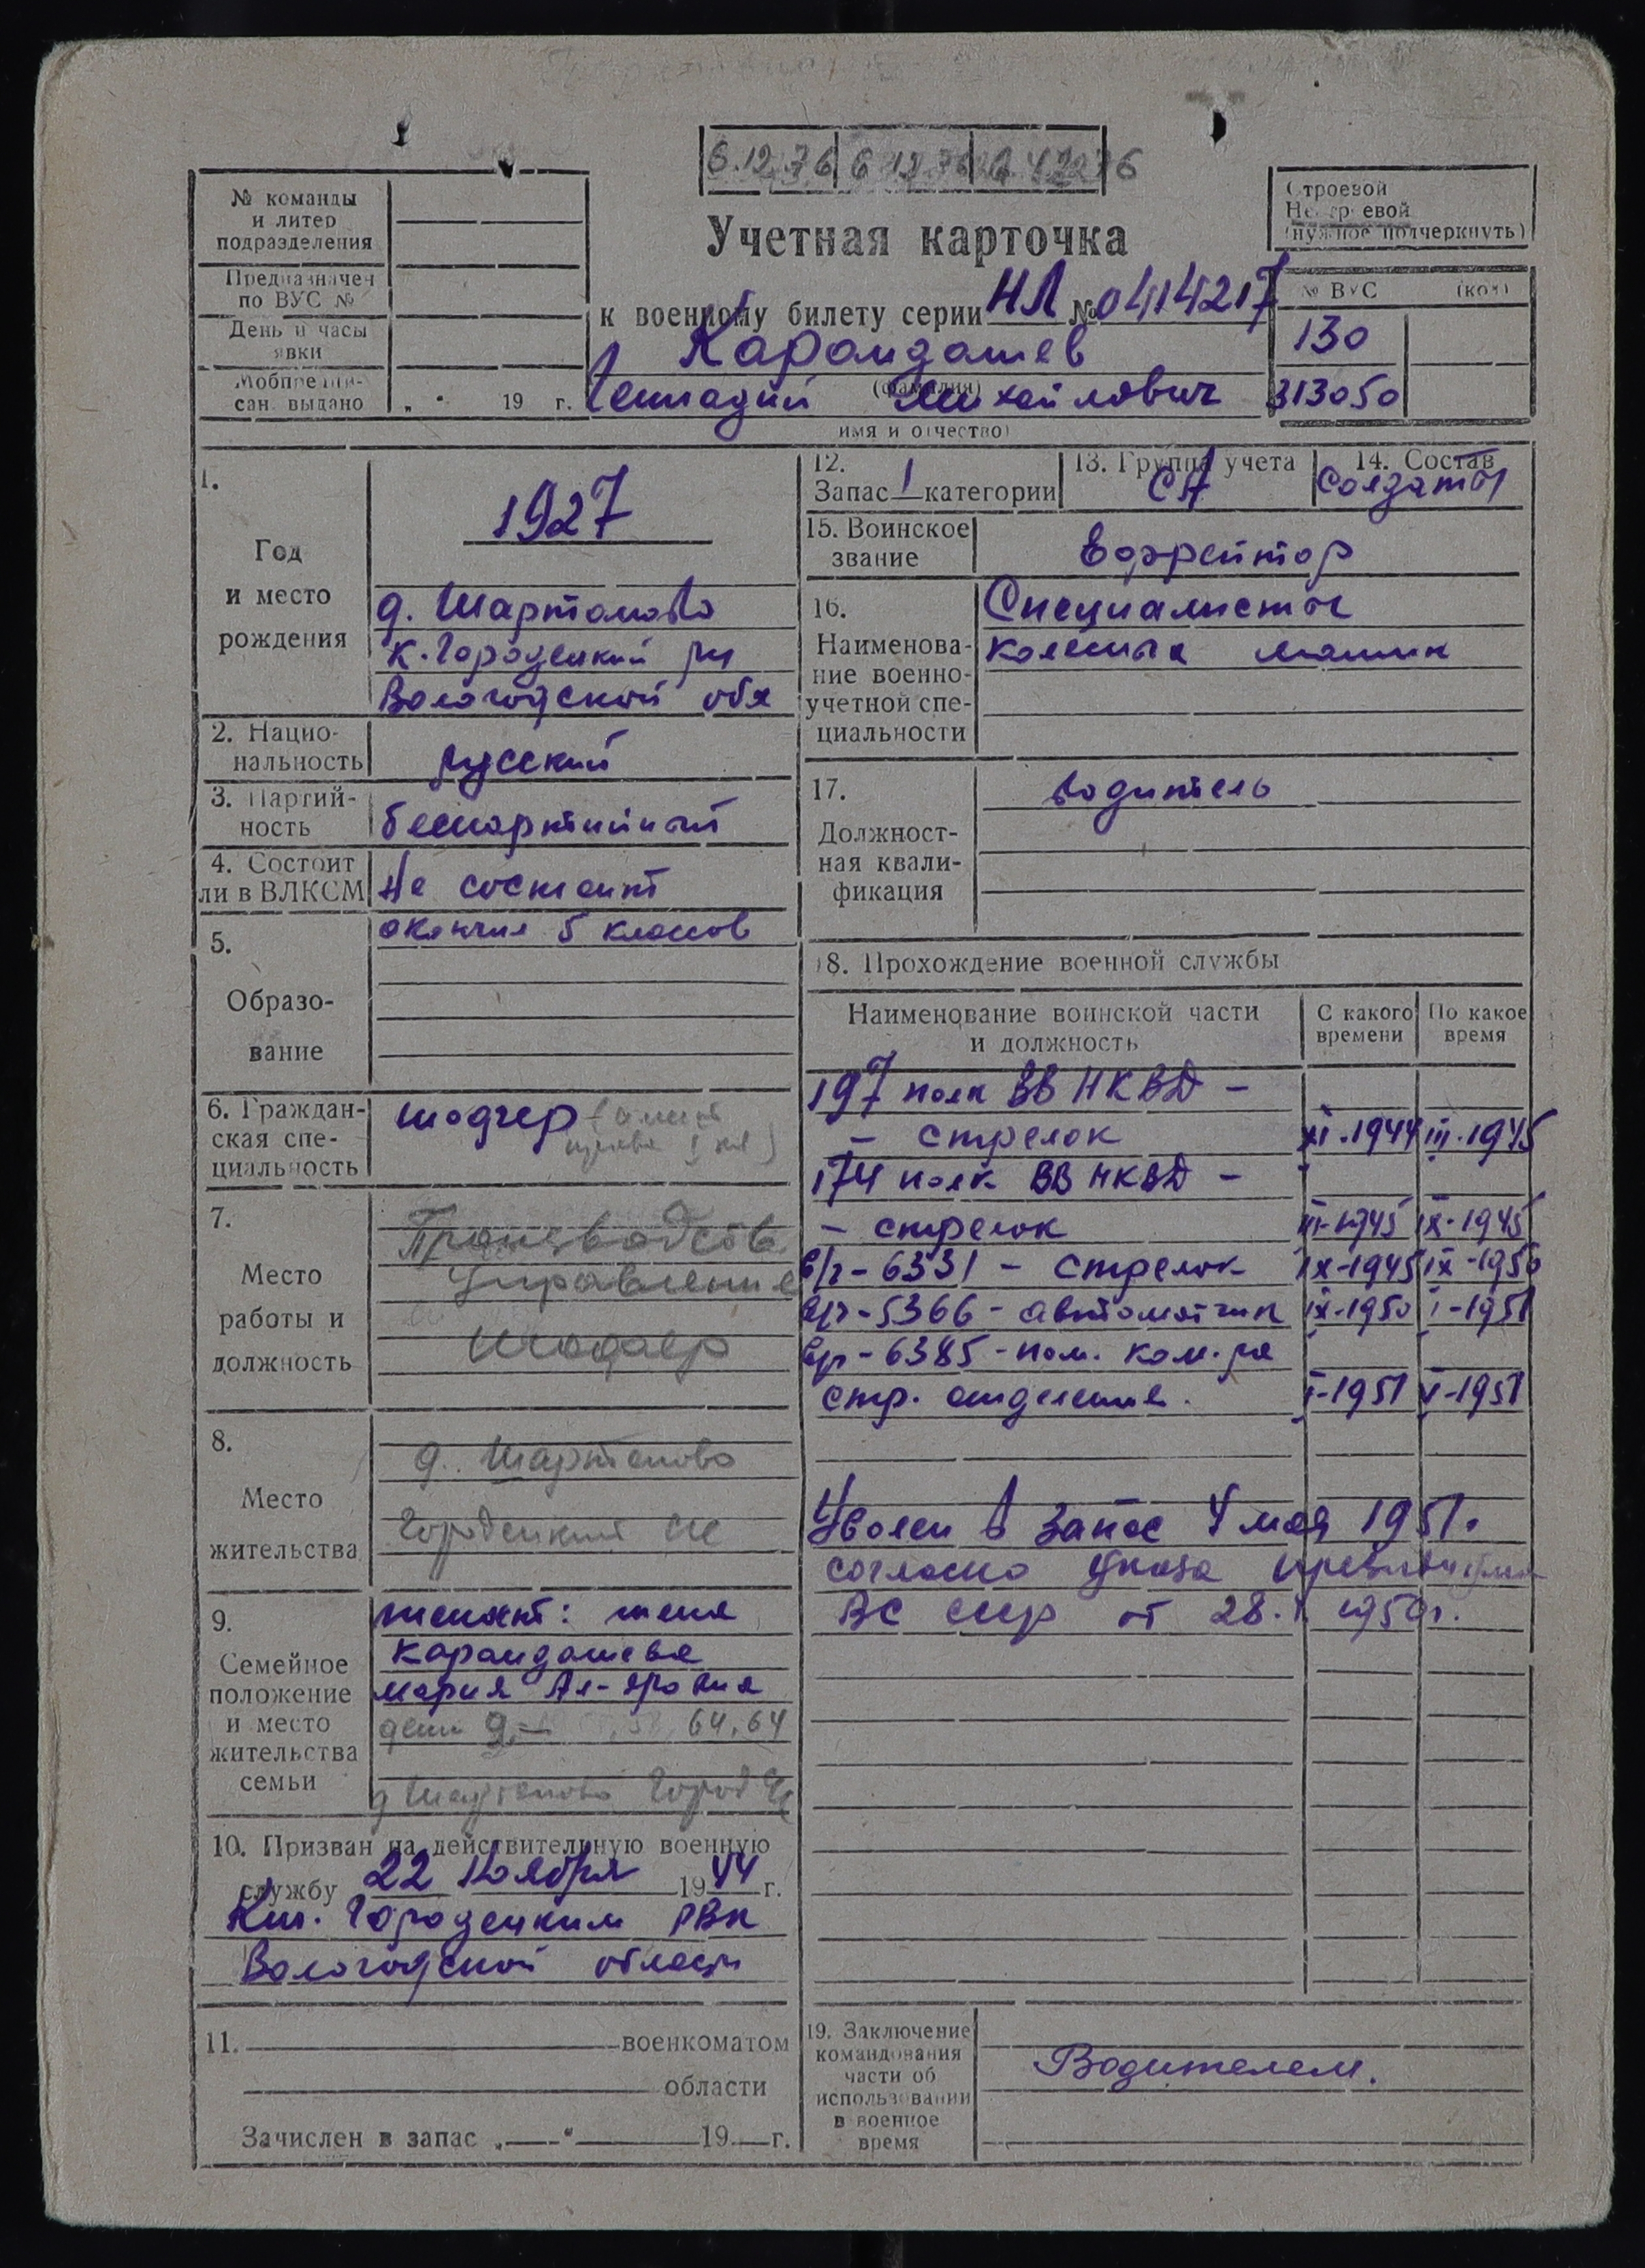 6.12.76
№ команды
и литер
подразделения
Предназначен
по ВУС №
День и часы
явки
Мобпредпи-
сан. выдано „ “ 19 г.
Учетная карточка
к военному билету серии НЛ № 0414217
Карандашев
(фамилия)
Геннадий Михайлович
имя и отчество)
Строевой
Нестроевой
(нужное подчеркнуть)
№ ВУС (код)
130
313050
1.
Год
и место
рождения
1927
д. Шартаново
К. Городецкий р-н
Вологодской обл
2. Нацио-
нальность
русский
3. Партий-
ность
беспартийный
4. Состоит
ли в ВЛКСМ
Не состоит
5.
Образо-
вание
окончил 5 классов
6. Граждан-
ская спе-
циальность
шофер
7.
Место
работы и
должность
Производств
Управление
Шофер
8.
Место
жительства
д. Шартаново
Городецкий с/с
9.
Семейное
положение
и место
жительства
семьи
женат: жена
Карандашева
Мария
дети 64, 64
д Шартаново Городец
10. Призван на действительную военную
службу 22 Ноября 1944 г.
Кич. Городецким РВК
Вологодской области
11. военкоматом
области
Зачислен в запас „ “ 19 г.
12.
Запас 1 категории
13. Группа учета
СА
14. Состав
Солдаты
15. Воинское
звание
Ефрейтор
16.
Наименова-
ние военно-
учетной спе-
циальности
Специалисты
колесных машин
17.
Должност-
ная квали-
фикация
водитель
18. Прохождение военной службы
Наименование воинской части
и должность
С какого
времени
По какое
время
197 полк ВВ НКВД –
– стрелок XI-1944 III-1945
174 полк ВВ НКВД –
– стрелок III-1945 IX-1945
в/ч-6331 – стрелок IX-1945 IX-1950
в/ч-5366 - автоматчик IX-1950 I-1951
в/ч-6385 - пом. ком-ра
стр. отделения. I-1951 V-1951
Уволен в запас 4 мая 1951.
согласно Указа Президиума
ВС СССР от 28. 1950г.
19. Заключение
командования
части об
использовании
в военное
время
Водителем.